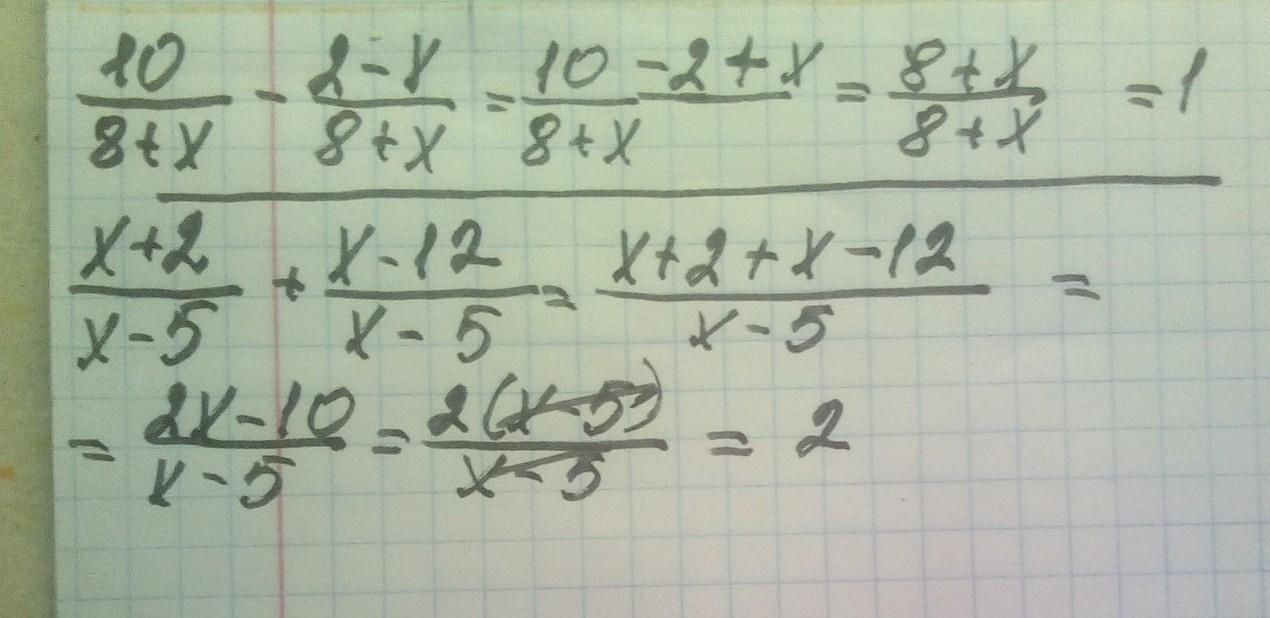 10/(8+x) - (2-x)/(8+x) = (10-2+x)/(8+x) = (8+x)/(8+x) = 1
(x+2)/(x-5) + (x-12)/(x-5) = (x+2+x-12)/(x-5) =
= (2x-10)/(x-5) = 2(x-5)/(x-5) = 2